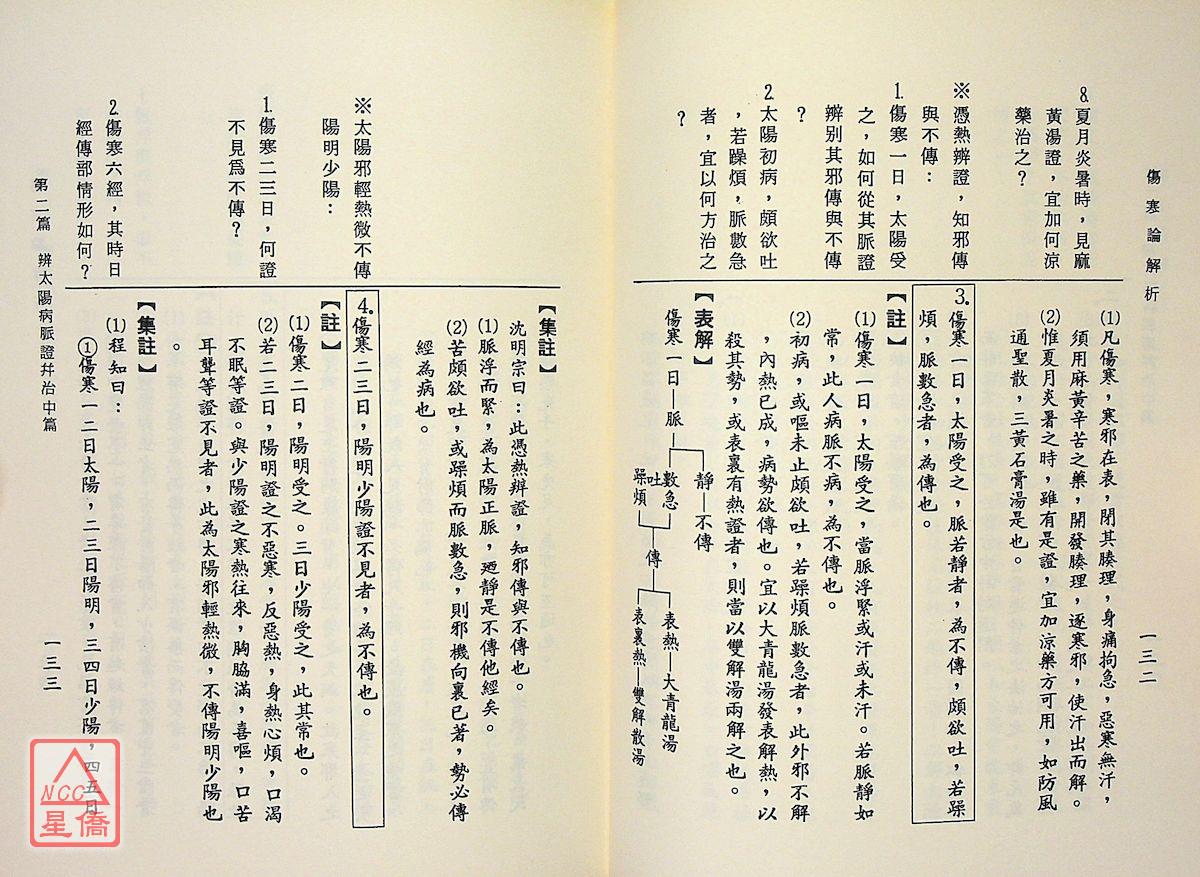 傷寒論解析
一三二
8.夏月炎暑時，見麻
黃湯證，宜加何涼
藥治之？
※憑熱辨證，知邪傳
與不傳：
1.傷寒一日，太陽受
之，如何從其脈證
辨別其邪傳與不傳
？
2.太陽初病，頗欲吐
，若躁煩，脈數急
者，宜以何方治之
？
⑴凡傷寒，寒邪在表，閉其腠理，身痛拘急，惡寒無汗，
須用麻黃辛苦之藥，開發腠理，逐寒邪，使汗出而解。
⑵惟夏月炎暑之時，雖有是證，宜加涼藥方可用，如防風
通聖散，三黃石膏湯是也。
3.傷寒一日，太陽受之，脈若靜者，為不傳，頗欲吐，若躁
煩，脈數急者，為傳也。
【註】
⑴傷寒一日，太陽受之，當脈浮緊或汗或未汗。若脈靜如
常，此人病脈不病，為不傳也。
⑵初病，或嘔未止頗欲吐，若躁煩脈數急者，此外邪不解
，內熱已成，病勢欲傳也。宜以大青龍湯發表解熱，以
殺其勢，或表裏有熱證者，則當以雙解湯兩解之也。
【表解】
傷寒一日—脈
靜—不傳
數急
吐
躁煩
傳
表熱—大青龍湯
表裏熱—雙解散湯
※太陽邪輕熱微不傳
陽明少陽：
1.傷寒二三日，何證
不見爲不傳？
2.傷寒六經，其時日
經傳部情形如何？
【集註】
沈明宗曰：此憑熱辨證，知邪傳與不傳也。
⑴脈浮而緊，為太陽正脈，廼靜是不傳他經矣。
⑵若頗欲吐，或躁煩而脈數急，則邪機向裏已著，勢必傳
經為病也。
4.傷寒二三日，陽明少陽證不見者，為不傳也。
【註】
⑴傷寒二日，陽明受之。三日少陽受之，此其常也。
⑵若二三日，陽明證之不惡寒，反惡熱，身熱心煩，口渴
不眠等證。與少陽證之寒熱往來，胸脇滿，喜嘔，口苦
耳聾等證不見者，此為太陽邪輕熱微，不傳陽明少陽也
。
【集註】
⑴程知曰：
①傷寒一二日太陽，二三日陽明，三四日少陽，四五日
第二篇　辨太陽病脈證幷治中篇
一三三
NCC
星僑